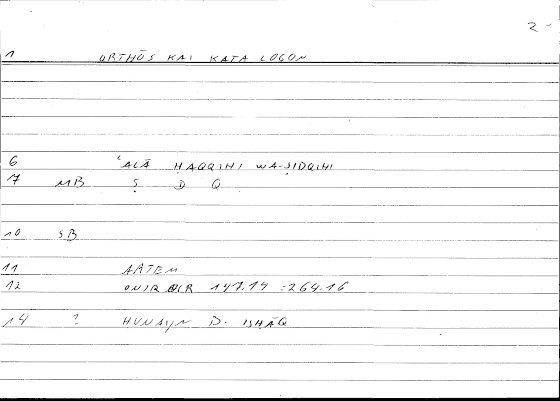 2-
1 ORTHŌS KAI KATA LOGON
6 ʿALĀ ḤAQQIHI WA-ṢIDQIHI
7 MB Ṣ D Q
10 SB
11 ARTEM
12 ONIR 147.14 =264.16
14 ? HUNAYN B. ISḤĀQ